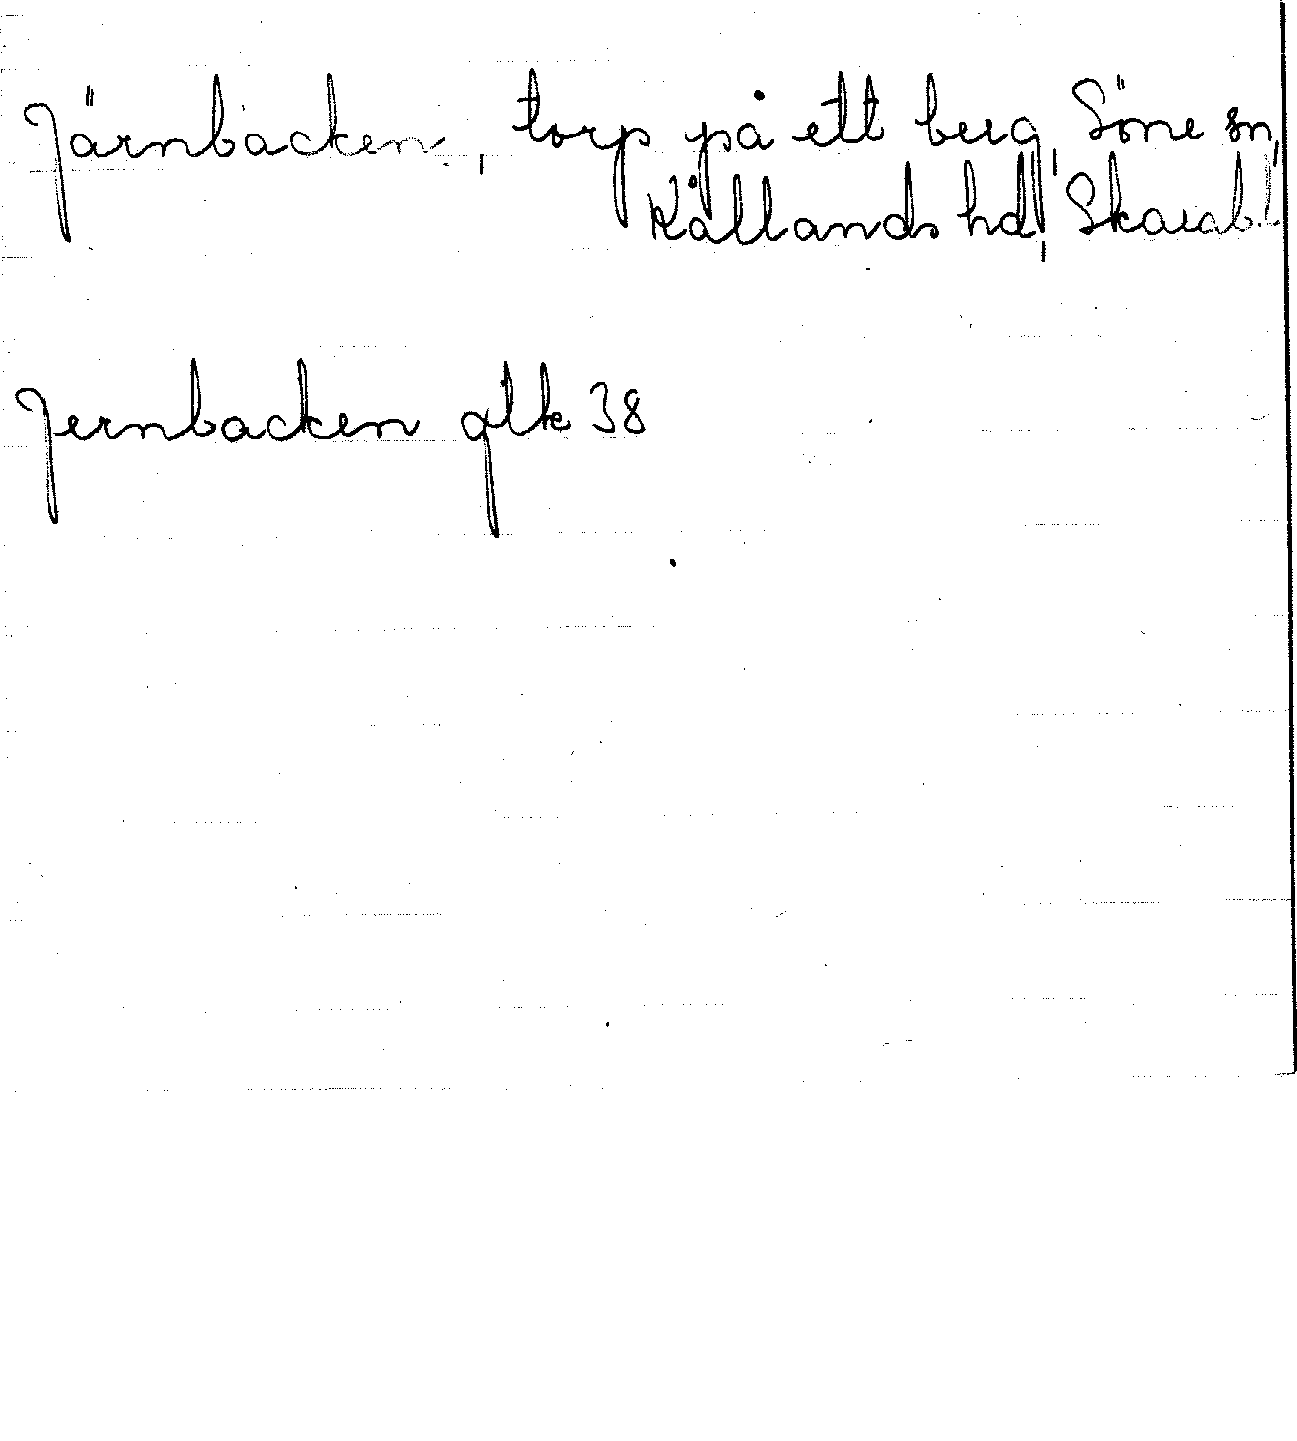 Järnbacken, torp på ett berg, Söne sn,
Kållands hd, Skarab.l.
Jernbacken glk 38